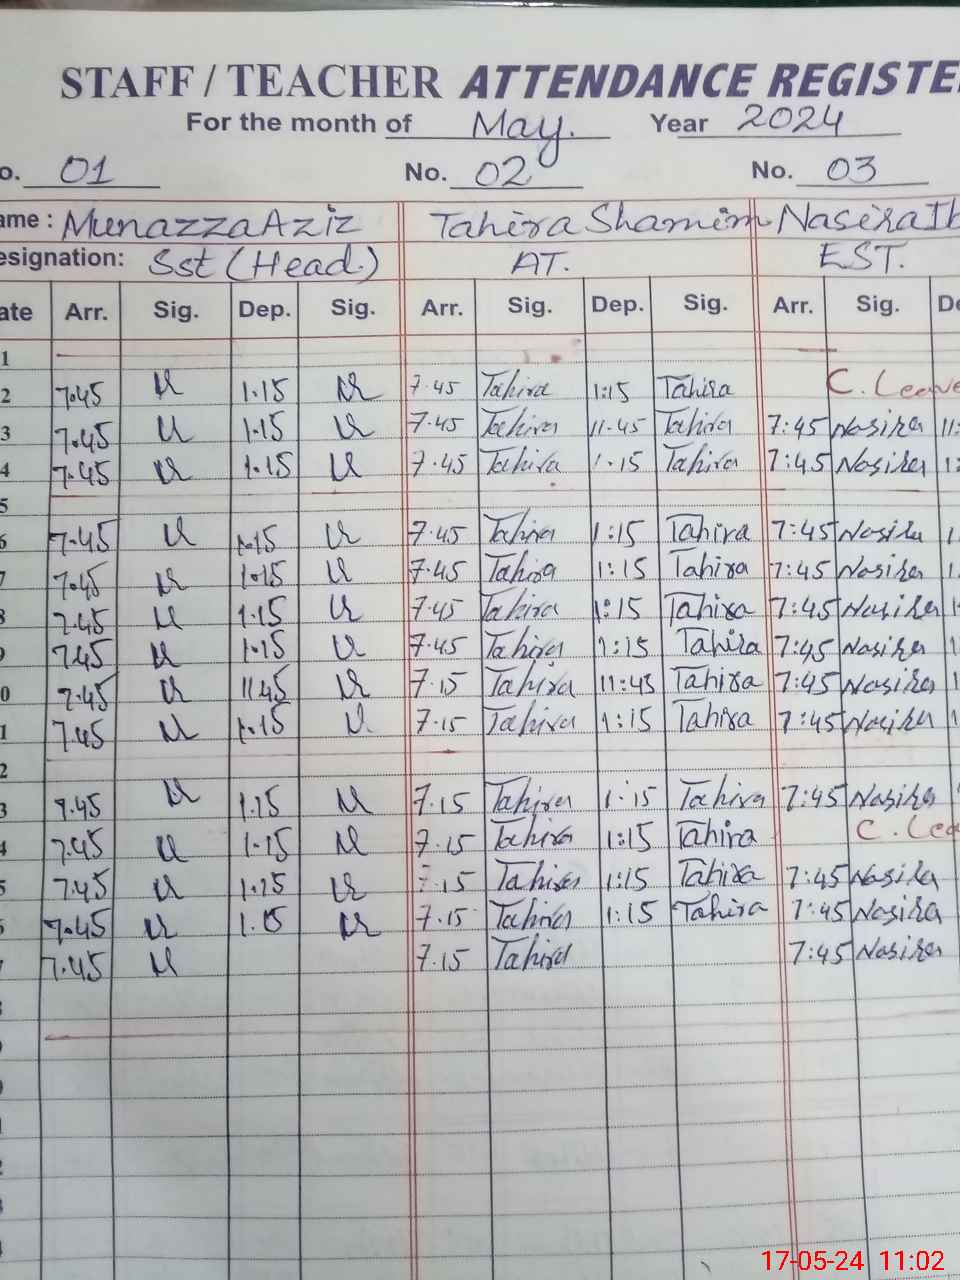 STAFF / TEACHER ATTENDANCE REGISTE
For the month of May. Year 2024
o. 01 No. 02 No. 03
ame : Munazza Aziz Tahira Shamim Nasira Ib
esignation: Sst (Head.) AT. EST.
ate Arr. Sig. Dep. Sig. Arr. Sig. Dep. Sig. Arr. Sig. De
1
2 7.45 1.15 7.45 Tahira 1:15 Tahira C. Leave
3 7.45 1.15 7.45 Tahira 11.45 Tahira 7:45 Nasira 11:
4 7.45 1.15 7.45 Tahira 1.15 Tahira 7:45 Nasira 1:
5
6 7.45 1.15 7.45 Tahira 1:15 Tahira 7:45 Nasira 1
7 7.45 1.15 7.45 Tahira 1:15 Tahira 7:45 Nasira 1
8 7.45 1.15 7.45 Tahira 1:15 Tahira 7:45 Nasira 1
9 7.45 1.15 7.45 Tahira 1:15 Tahira 7:45 Nasira 1
0 7.45 11.45 7.15 Tahira 11:45 Tahira 7:45 Nasira 1
1 7.45 1.15 7.15 Tahira 1:15 Tahira 7:45 Nasira 1
2
3 7.45 1.15 7.15 Tahira 1.15 Tahira 7:45 Nasira
4 7.45 1.15 7.15 Tahira 1:15 Tahira C. Lea
5 7.45 1.15 7.15 Tahira 1:15 Tahira 7:45 Nasira
6 7.45 1.15 7.15 Tahira 1:15 Tahira 7:45 Nasira
7 7.45 7.15 Tahira 7:45 Nasira
17-05-24 11:02